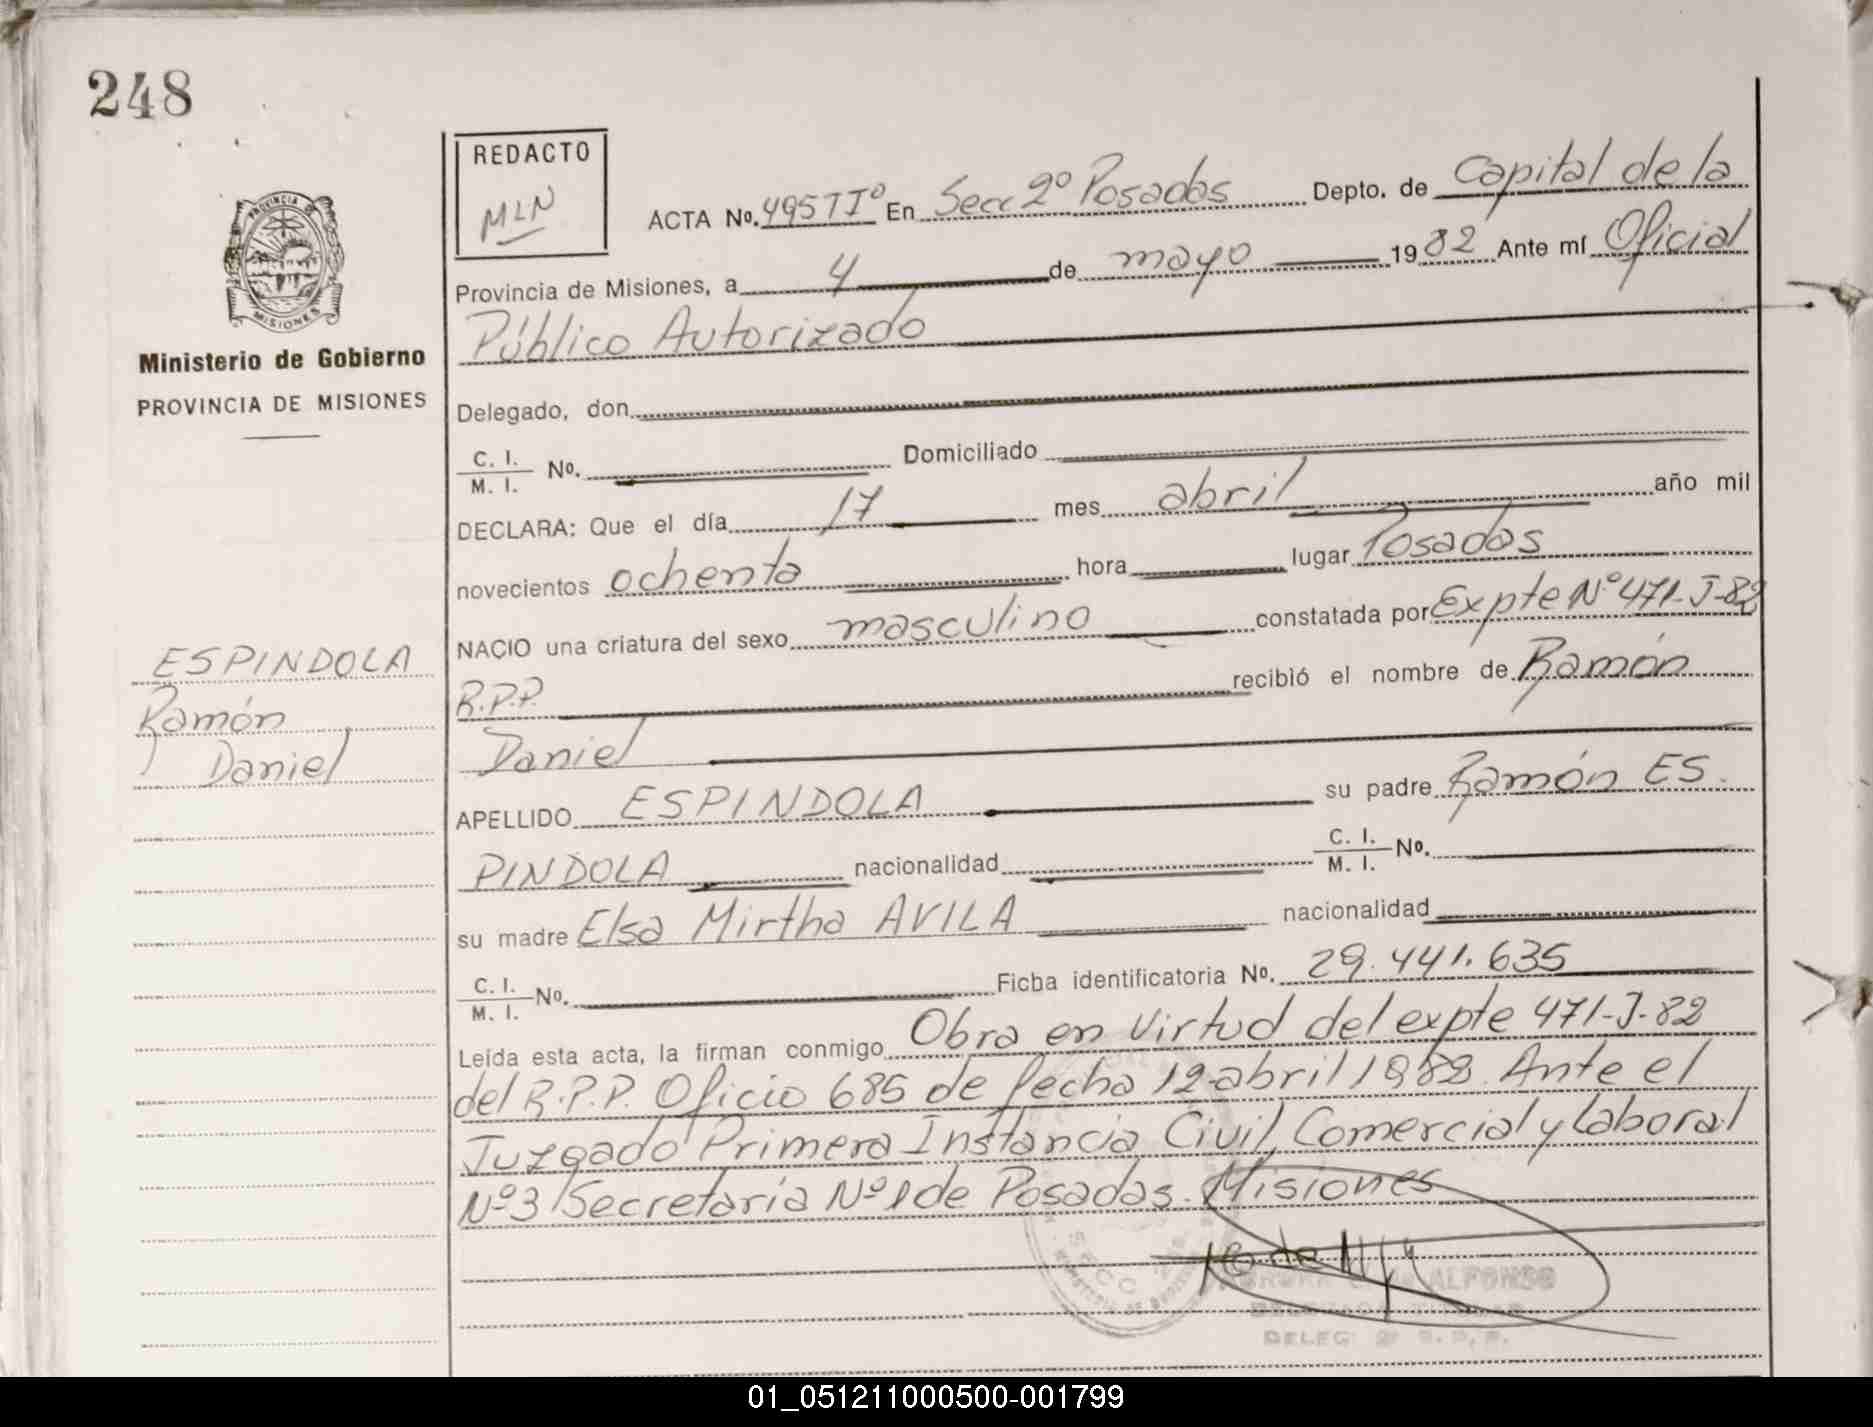 248
REDACTO
MLN
PROVINCIA DE
MISIONES
Ministerio de Gobierno
PROVINCIA DE MISIONES
ACTA No. 495 TIº En Secc 2º Posadas Depto. de Capital de la
Provincia de Misiones, a 4 de mayo 1982 Ante mí Oficial
Público Autorizado
Delegado, don
C. I.
M. I. No. Domiciliado
DECLARA: Que el día 17 mes abril año mil
novecientos ochenta hora lugar Posadas
NACIO una criatura del sexo masculino constatada por Expte Nº 471-J-82
R.P.P. recibió el nombre de Ramón
Daniel
ESPINDOLA
Ramón
Daniel
APELLIDO ESPINDOLA su padre Ramón ES.
PINDOLA nacionalidad C. I.
M. I. No.
su madre Elsa Mirtha AVILA nacionalidad
C. I.
M. I. No. Ficha identificatoria No. 29.441.635
Leída esta acta, la firman conmigo Obra en Virtud del expte 471-J-82
del R.P.P. Oficio 685 de fecha 12-abril 1982. Ante el
Juzgado Primera Instancia Civil, Comercial y Laboral
Nº3 Secretaría Nº1 de Posadas. Misiones
ALFONSO
DELEG.
01_051211000500-001799